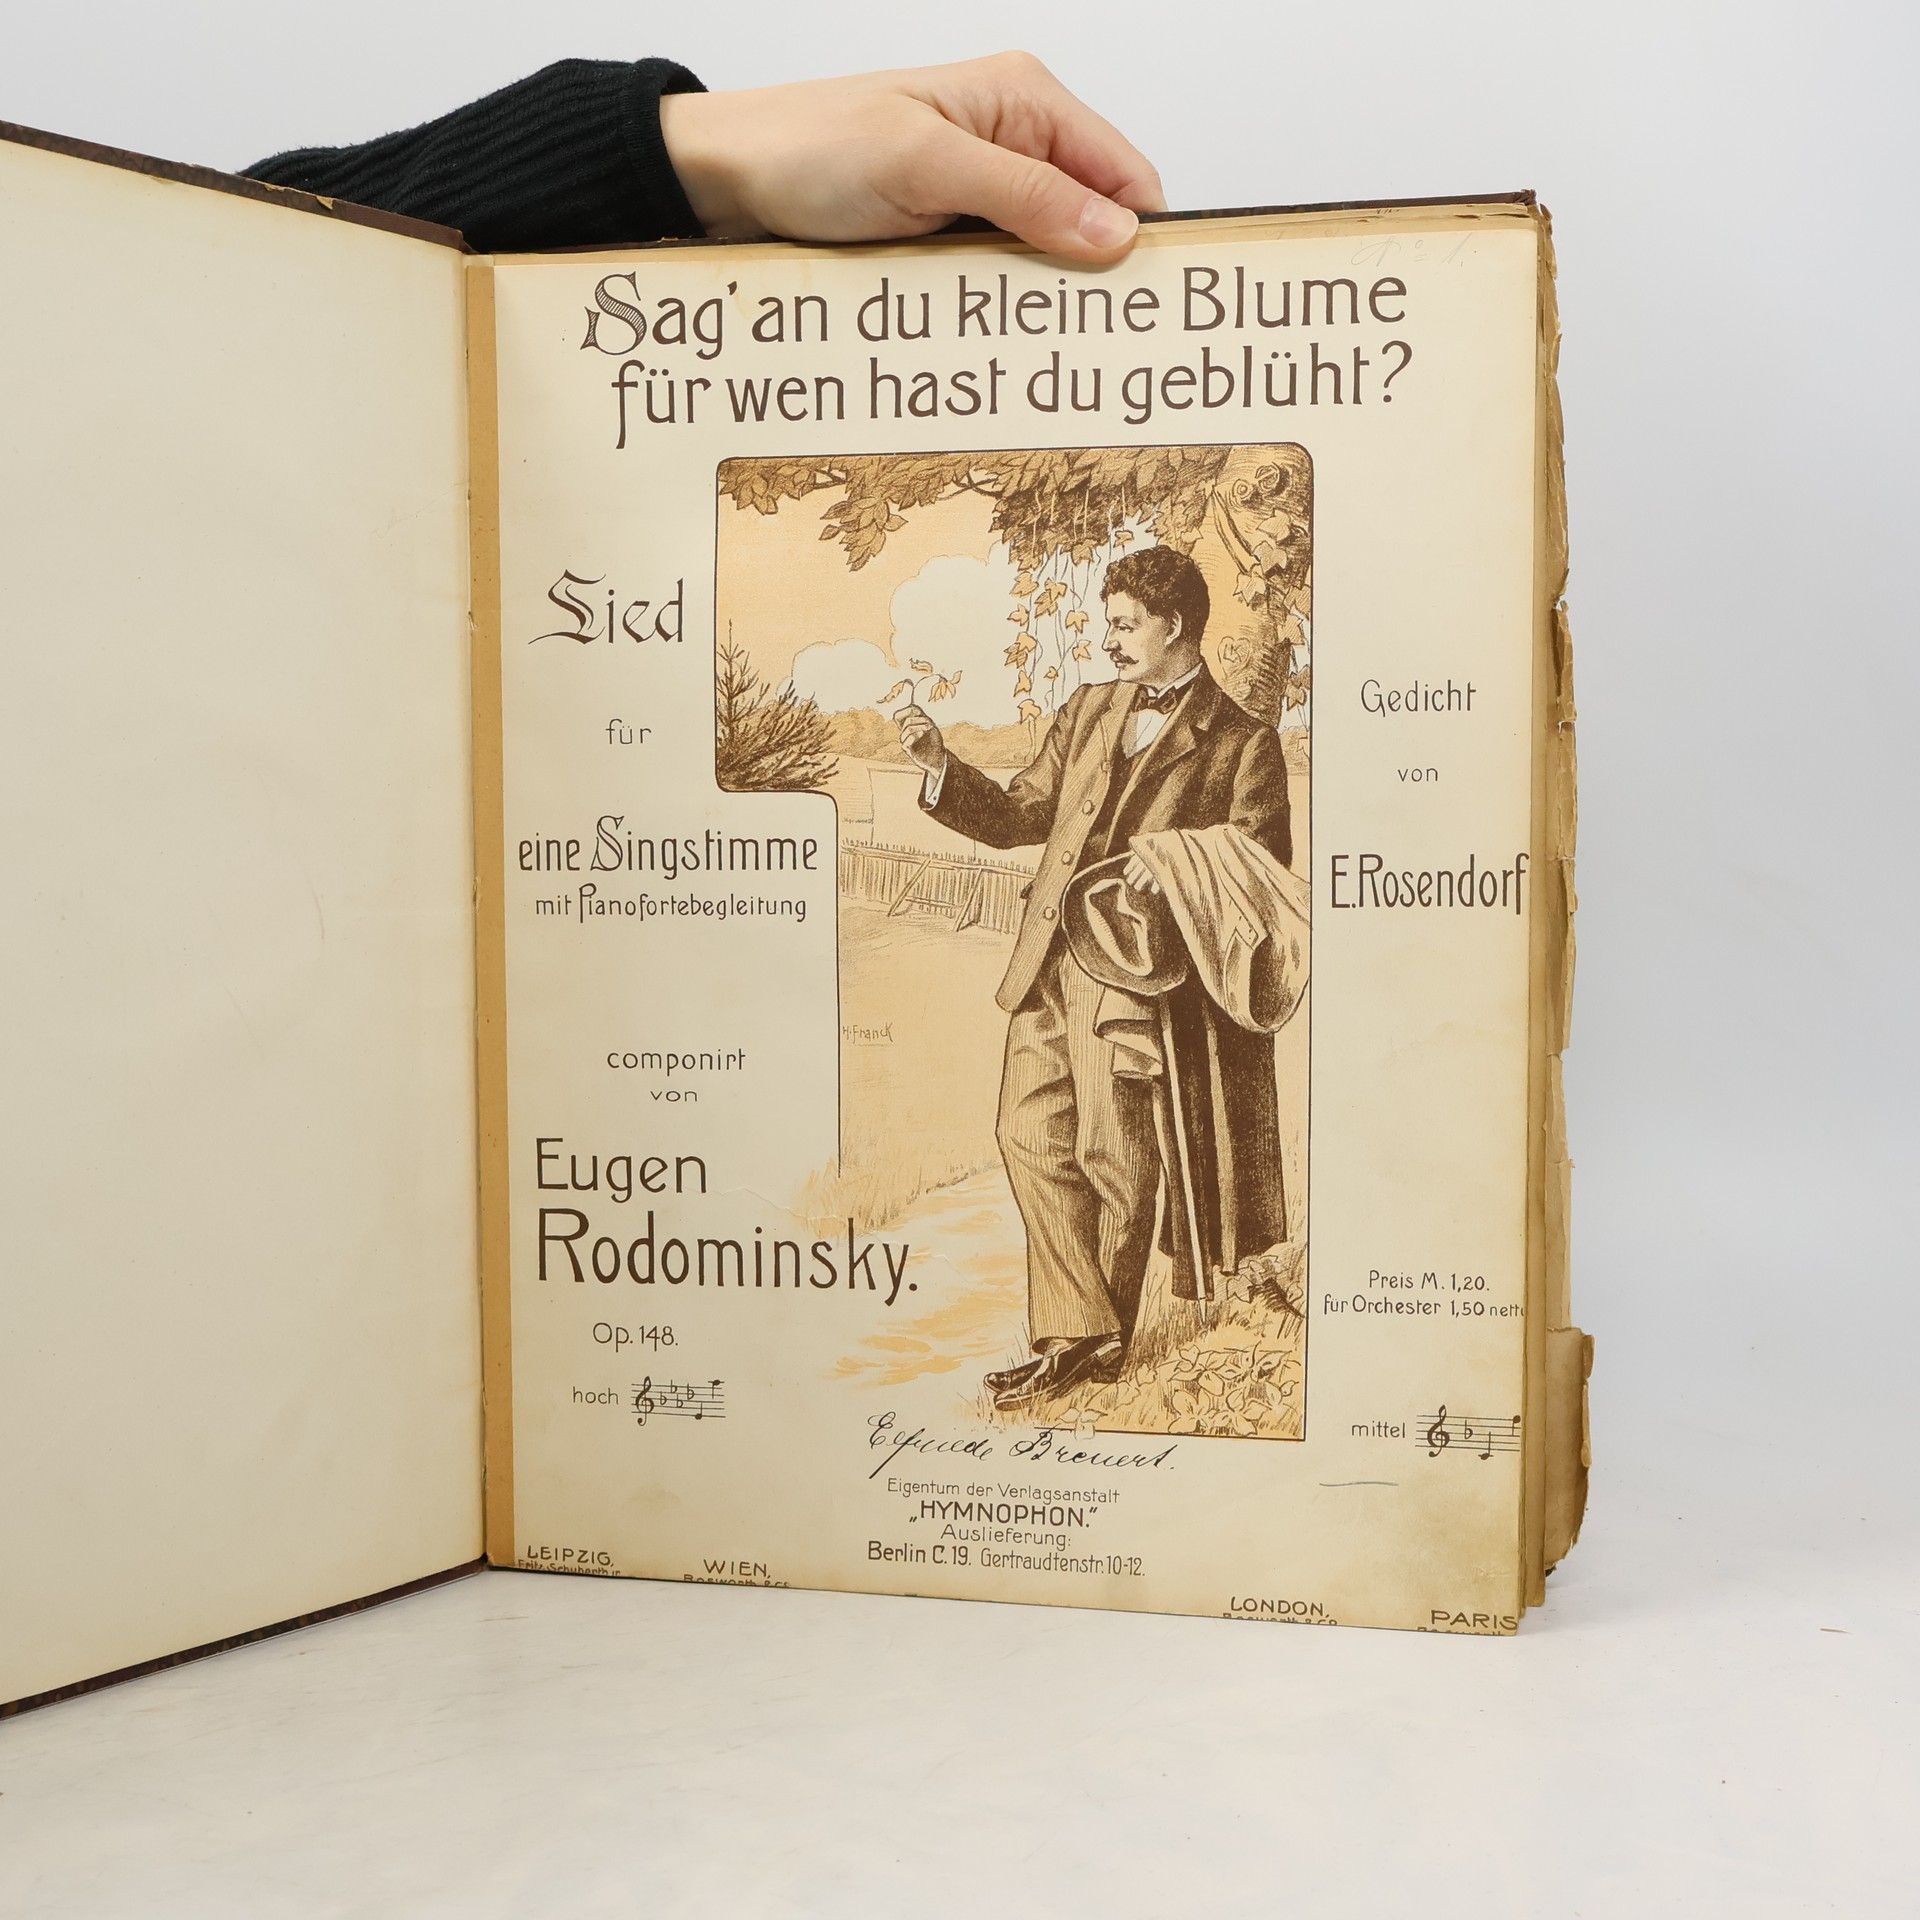 No 1.
Sag' an du kleine Blume
für wen hast du geblüht?
Lied
für
eine Singstimme
mit Pianofortebegleitung
componirt
von
Eugen
Rodominsky.
Op. 148.
hoch
Gedicht
von
E. Rosendorf
H. Franck
Preis M. 1,20.
für Orchester 1,50 netto
mittel
Elfriede Brenert.
Eigentum der Verlagsanstalt
„HYMNOPHON."
Auslieferung:
Berlin C. 19. Gertraudtenstr. 10-12.
LEIPZIG,
Fritz Schuberth jr.
WIEN,
Bosworth & Co.
LONDON,
Bosworth & Co.
PARIS
Bosworth